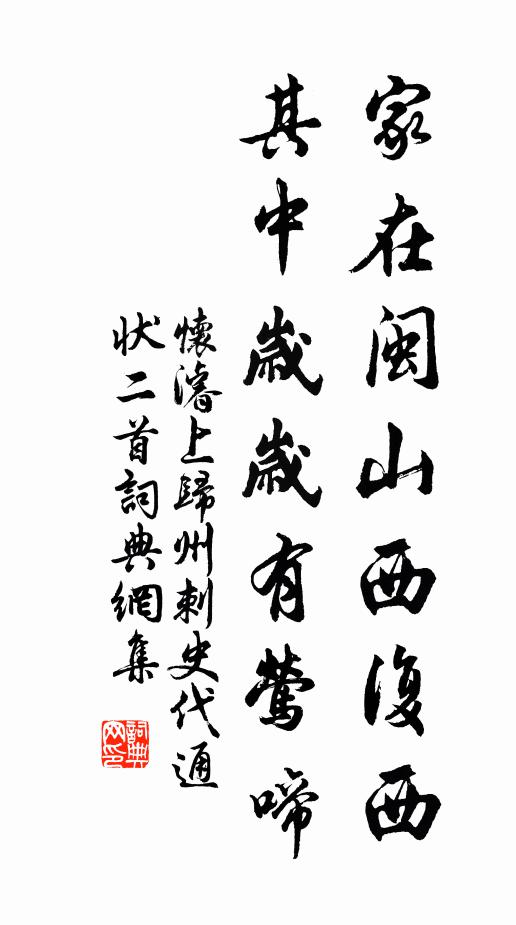 家在閩山西復西
其中歲歲有鶯啼
懷濬上歸州刺史代通
狀二首詞典網集
詞典
网印